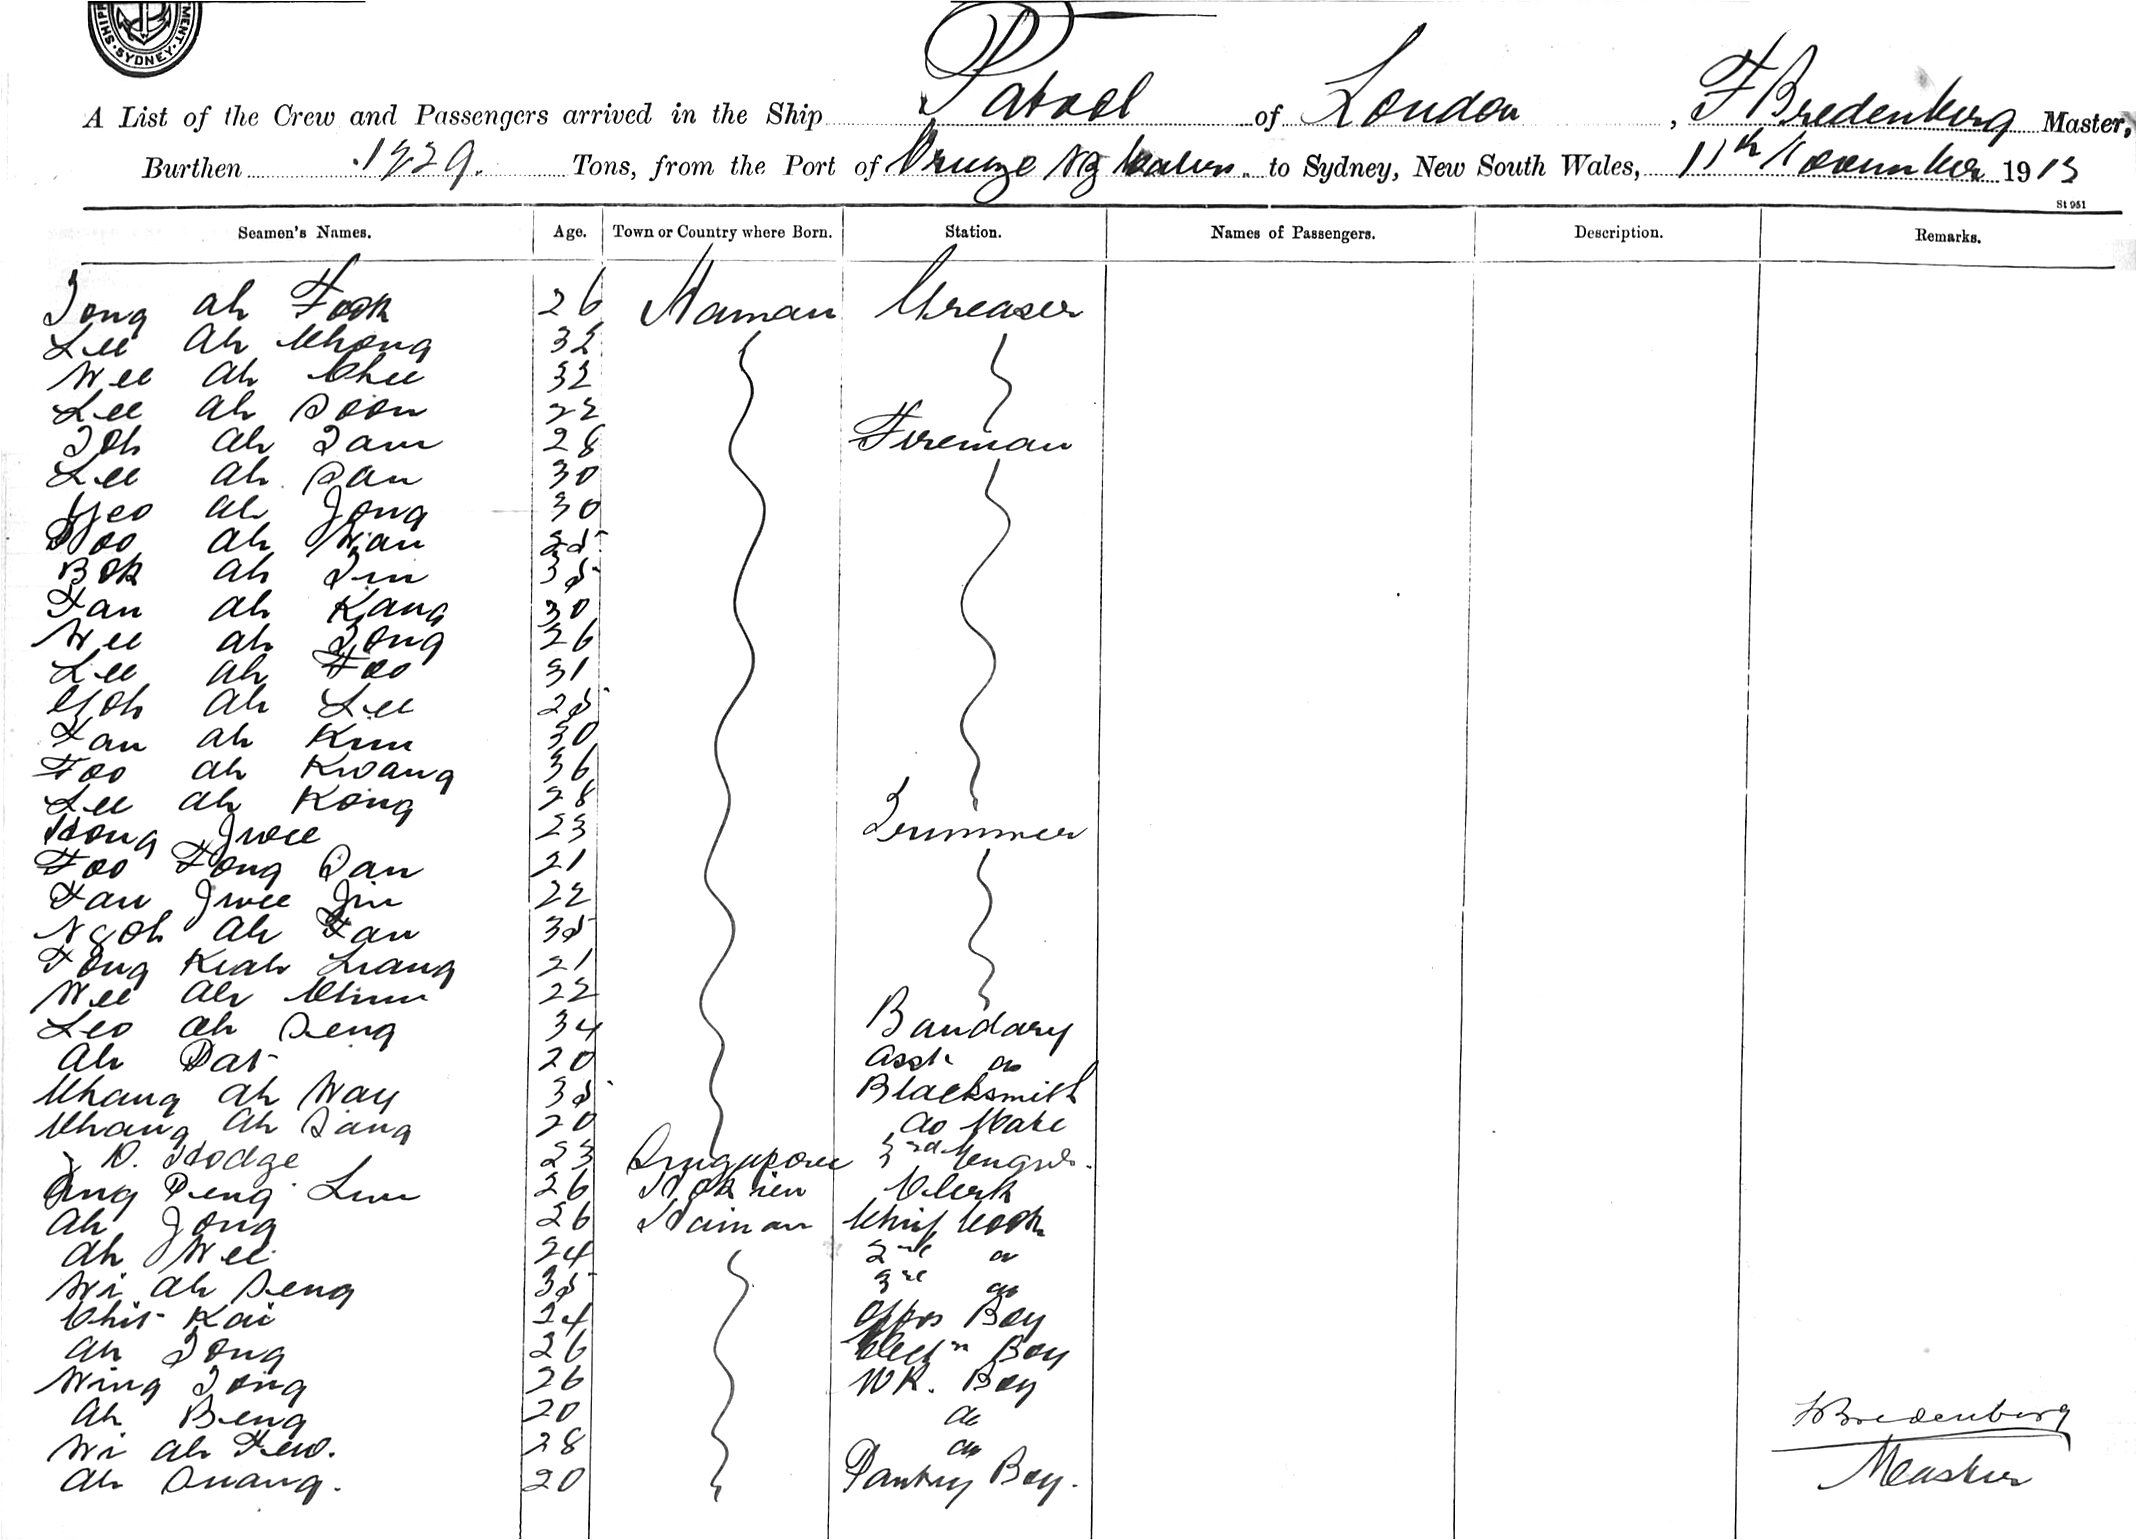 SHIPP MENT. SYDNEY.
A List of the Crew and Passengers arrived in the Ship Patrol of London, F Bredenberg Master,
Burthen 1229. Tons, from the Port of to Sydney, New South Wales, 11th November 1913
St 951
Seamen's Names. Age. Town or Country where Born. Station. Names of Passengers. Description. Remarks.
Tong Ah Fook 26 Hainan Greaser
Lee Ah Chong 32
Wee Ah Chee 32
Lee Ah Soon 22
Toh Ah Tam 28 Fireman
Lee Ah San 30
Yeo Ah Jong 30
Foo Ah Wan 25
Bok Ah Tin 35
Tan Ah Kang 30
Wee Ah Tong 26
Lee Ah Foo 31
Goh Ah Lee 25
Tan Ah Kim 30
Foo Ah Kwang 36
Lee Ah Kong 28
Hong Jwee 23 Trimmer
Foo Fong San 21
Tan Jwee Jin 22
Ngoh Ah Tan 35
Fong Kiah Liang 21
Wee Ah Chun 22
Leo Ah Seng 34 Bandary
Ah Pat 20 Asst do
Chang Ah Way 35 Blacksmith
Chang Ah Sang 20 do Mate
D. Hodge 23 Singapore 3rd Engnr.
Ong Peng Lim 26 Hokkien Clerk
Ah Jong 26 Hainan Chief Cook
Ah Wee 24 2nd do
Wi Ah Seng 35 3rd do
Chit Kai 24 Offrs Boy
Ah Tong 26 Boy
Wing Tong 26 Boy
Ah Beng 20 do
Wi Ah Tew. 28 do
Ah Suang. 20 Pantry Boy.
F Bredenberg
Master